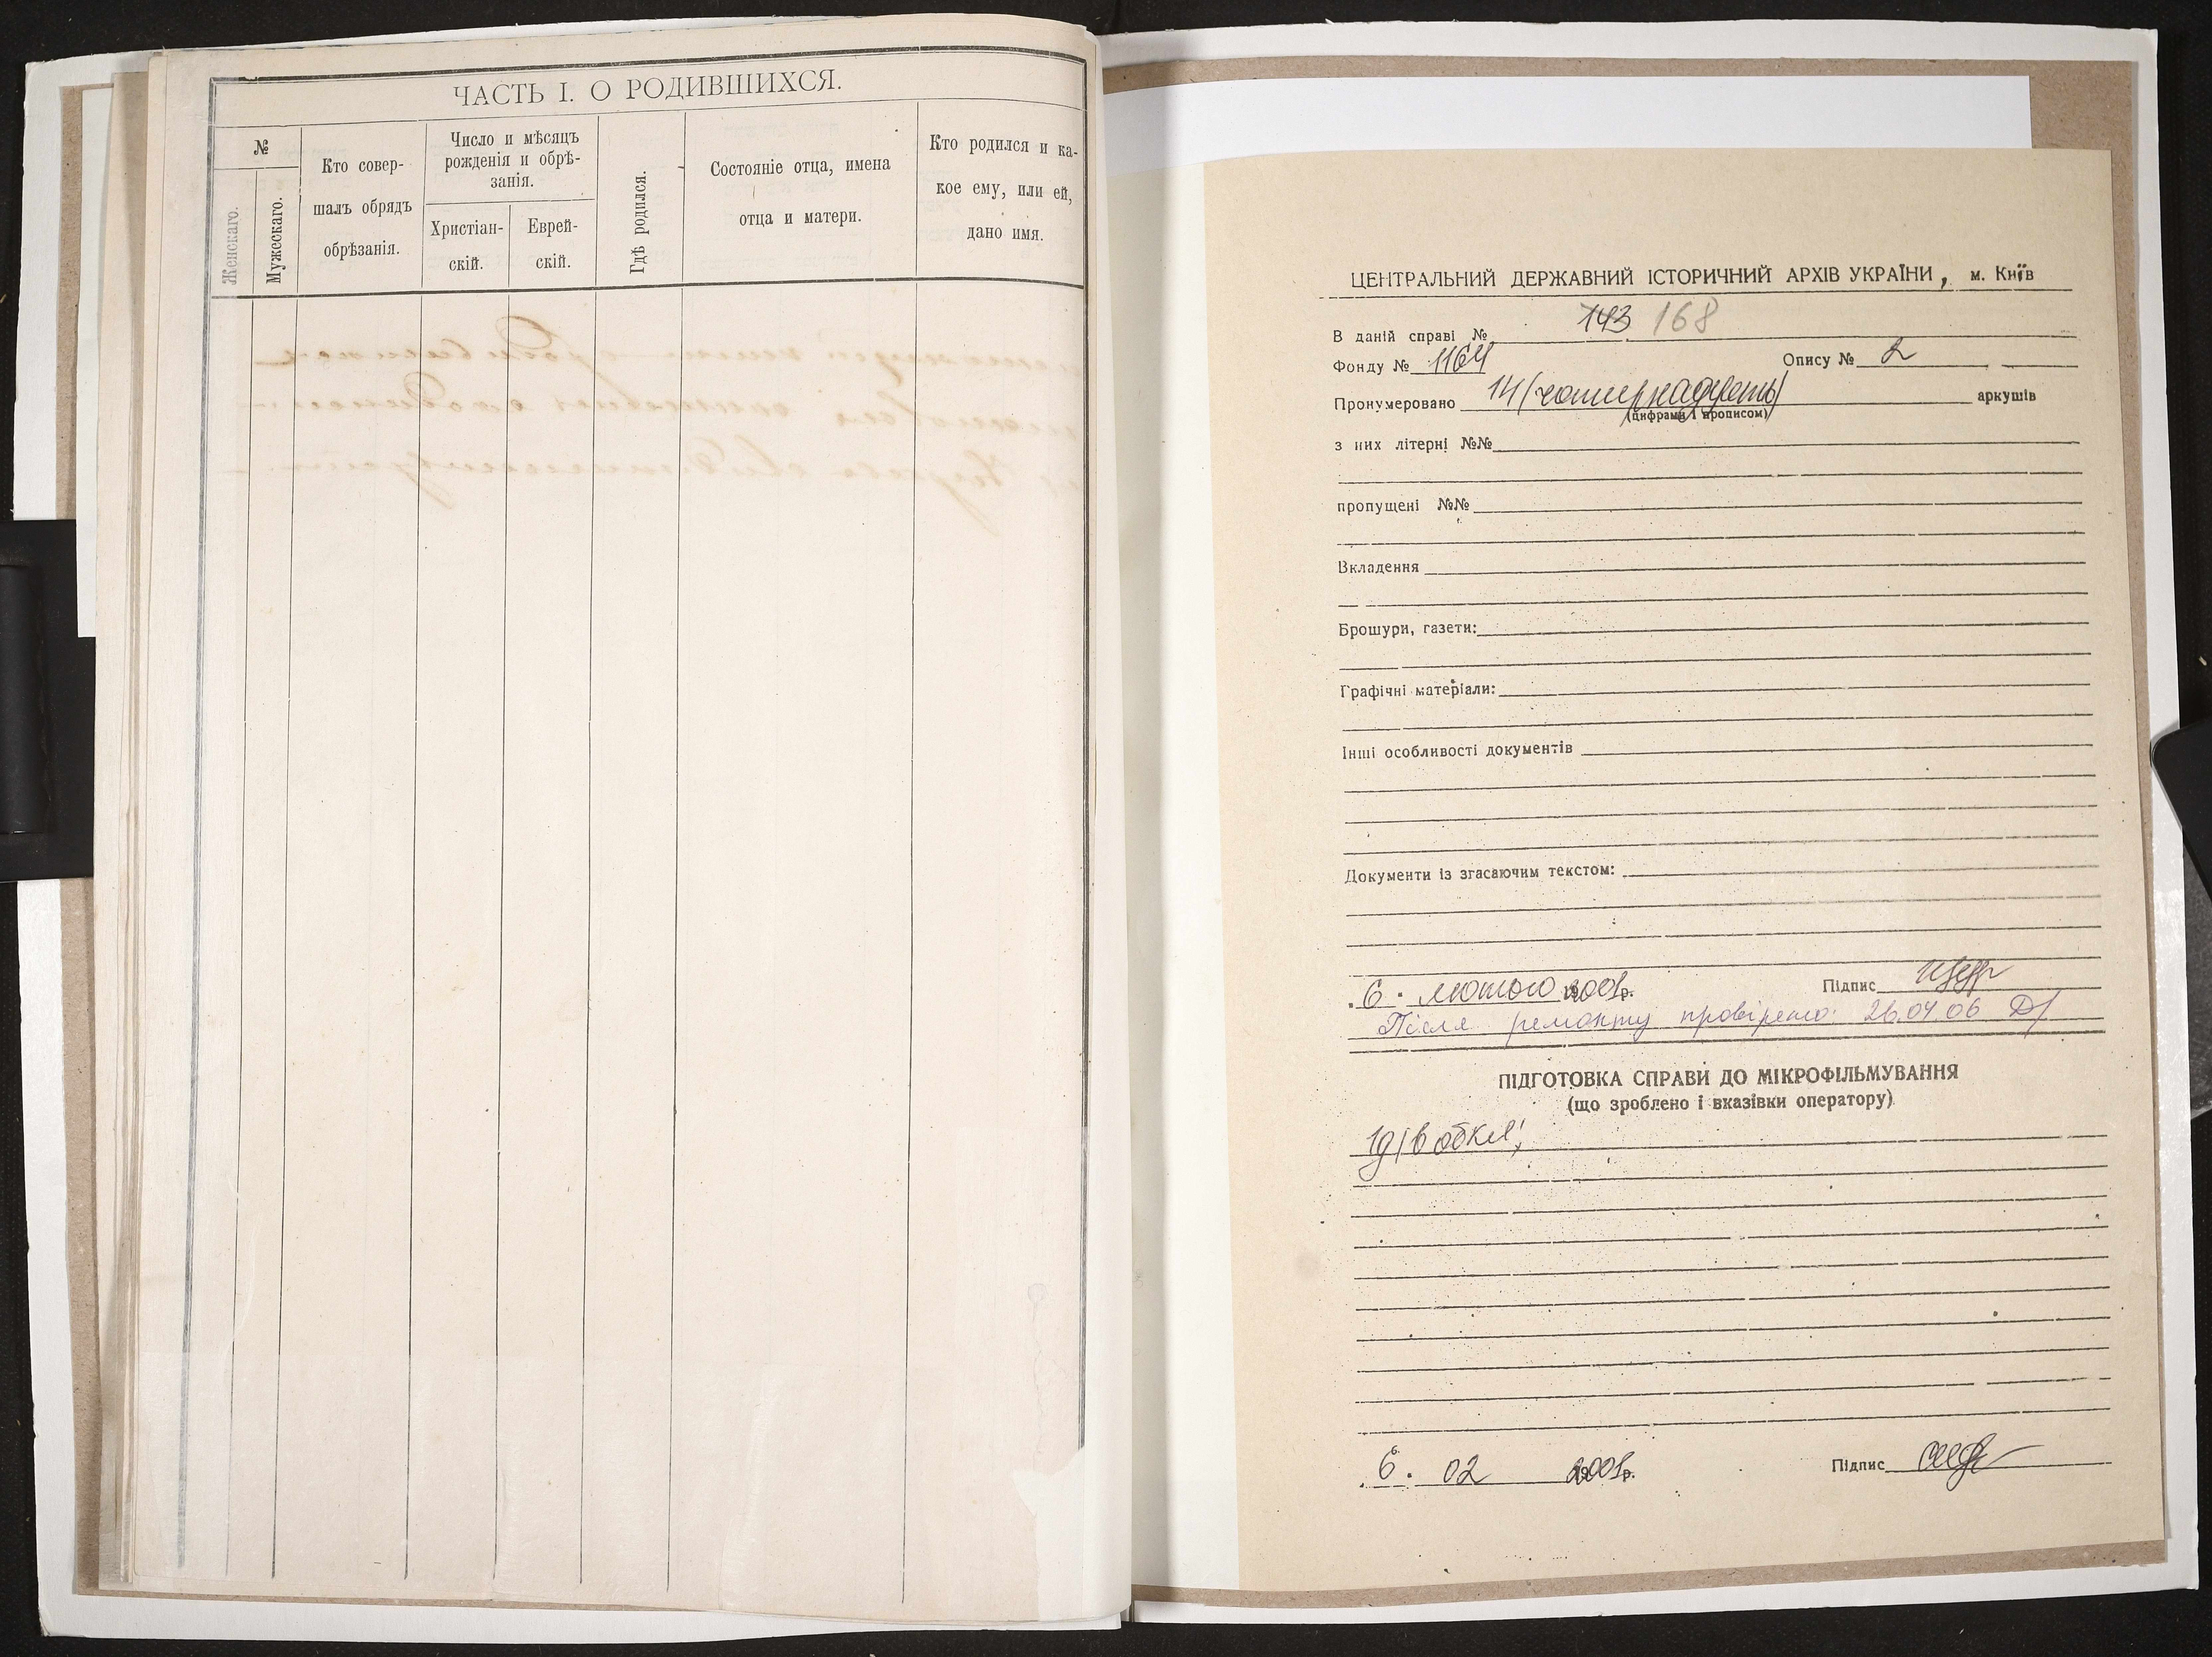 ЧАСТЬ I. О РОДИВШИХСЯ.
№
Женскаго.
Мужескаго.
Кто совер-
шалъ обрядъ
обрѣзанія.
Число и мѣсяцъ
рожденія и обрѣ-
занія.
Христіан-
скій.
Еврей-
скій.
Гдѣ родился.
Состояніе отца, имена
отца и матери.
Кто родился и ка-
кое ему, или ей,
дано имя.
ЦЕНТРАЛЬНИЙ ДЕРЖАВНИЙ ІСТОРИЧНИЙ АРХІВ УКРАЇНИ, м. Київ
В даній справі № 143 168
Фонду № 1164 Опису № 2
Пронумеровано 14 (чотирнадцять) аркушів
(цифрами і прописом)
з них літерні №№
пропущені №№
Вкладення
Брошури, газети:
Графічні матеріали:
Інші особливості документів
Документи із згасаючим текстом:
"6" лютого 2001р. Підпис
Після ремонту провірено: 26.04.06
ПІДГОТОВКА СПРАВИ ДО МІКРОФІЛЬМУВАННЯ
(що зроблено і вказівки оператору)
6. 02 2001р. Підпис